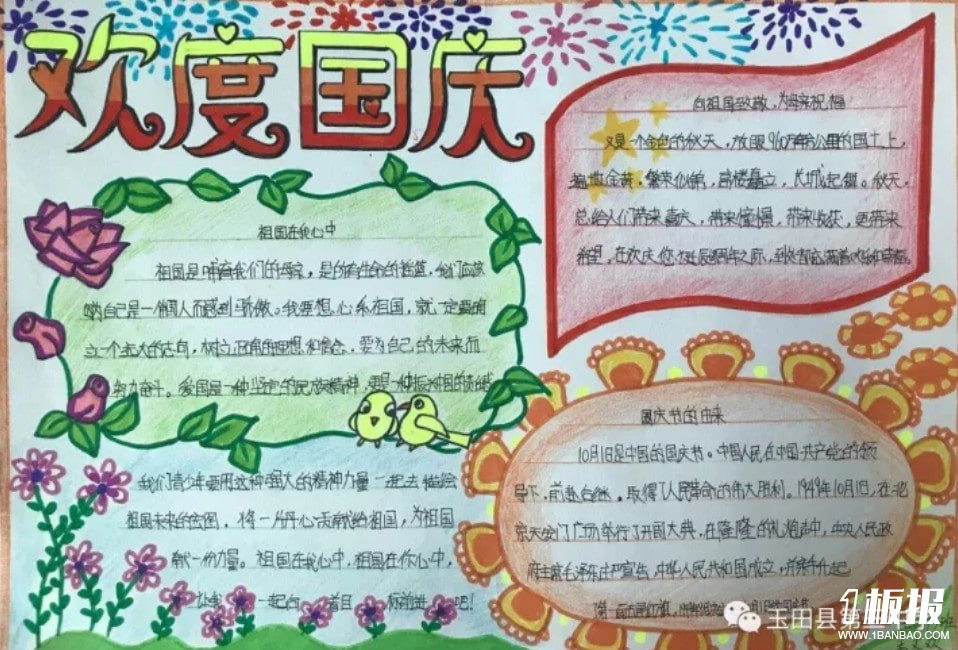 欢度国庆
向祖国致敬,为母亲祝福
又是一个金色的秋天,放眼960万平方公里的国土上,
遍撒金黄,繁荣似锦,高楼矗立,长城起舞。秋天,
总给人们带来喜庆,带来憧憬,带来收获,更带来
希望。在欢庆您
祖国在我心中
祖国是哺育我们的母亲,是生命的摇篮,我们应该
因自己是一个中国人而感到骄傲。我要想心系祖国,就一定要确
立一个远大的志向,树立正确的理想和信念,要为自己的未来而
努力奋斗。爱国是一种坚定的民族精神,更是一种振兴祖国的责任感
国庆节的由来
10月1日是中国的国庆节。中国人民在中国共产党的领
导下,前赴后继,取得了人民革命的伟大胜利。1949年10月1日,在北
京天安门广场举行了开国大典,在隆隆的礼炮声中,中央人民政
府主席毛泽东庄严宣告,中华人民共和国成立,并亲手升起
了第一面五星红旗。
我们青少年要用这种强大的精神力量一起去描绘
祖国未来的宏图。将一片丹心贡献给祖国,为祖国
献一份力量。祖国在我心中,祖国在你心中,
让我 一起向 着目 标前进吧!
玉田县第
板报
WWW.1BANBAO.COM